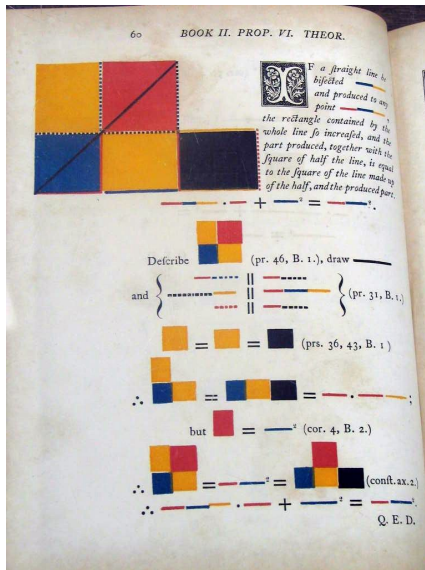 60 BOOK II. PROP. VI. THEOR.
IF a ſtraight line be
biſected
and produced to any
point ,
the rectangle contained by the
whole line ſo increaſed, and the
part produced, together with the
ſquare of half the line, is equal
to the ſquare of the line made up
of the half, and the produced part.
· + ² = ².
Deſcribe (pr. 46, B. 1.), draw
and { || || || } (pr. 31, B. 1.)
= = (prs. 36, 43, B. 1 )
∴ = = · ;
but = ² (cor. 4, B. 2.)
∴ = ² = (conſt. ax. 2.)
∴ · + ² = ².
Q. E. D.